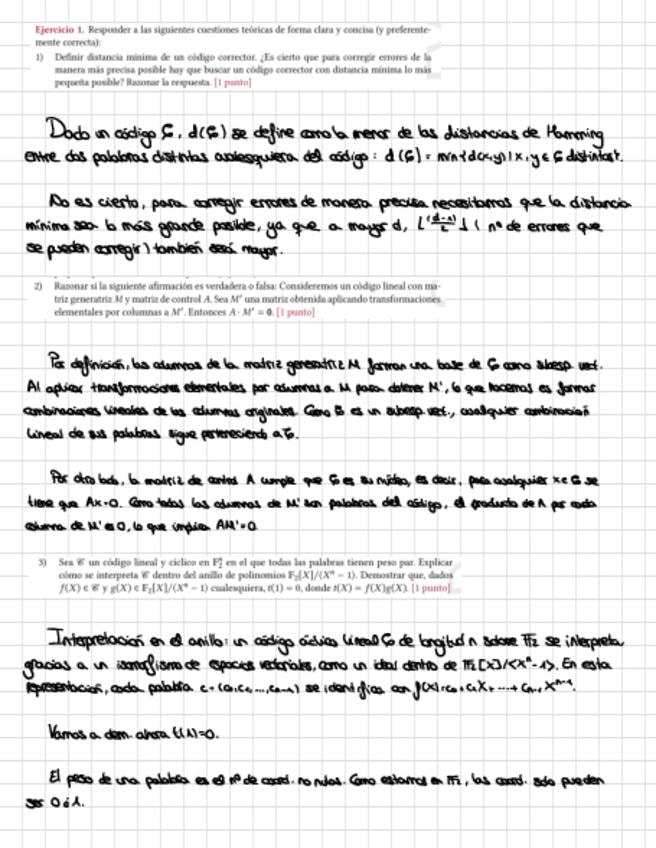 Ejercicio 1. Responder a las siguientes cuestiones teóricas de forma clara y concisa (y preferente-
mente correcta):
1) Definir distancia mínima de un código corrector. ¿Es cierto que para corregir errores de la
manera más precisa posible hay que buscar un código corrector con distancia mínima lo más
pequeña posible? Razonar la respuesta. [1 punto]
Dado un código C, d(C) se define como la menor de las distancias de Hamming
entre dos palabras distintas cualesquiera del código: d(C) = min{d(x,y) | x,y ∈ C distintas}.
No es cierto, para corregir errores de manera precisa necesitamos que la distancia
mínima sea lo más grande posible, ya que a mayor d, ⌊(d-1)/2⌋ (nº de errores que
se pueden corregir) también será mayor.
2) Razonar si la siguiente afirmación es verdadera o falsa: Consideremos un código lineal con ma-
triz generatriz M y matriz de control A. Sea M' una matriz obtenida aplicando transformaciones
elementales por columnas a M'. Entonces A · M' = 0. [1 punto]
Por definición, las columnas de la matriz generatriz M forman una base de C como subesp. vect.
Al aplicar transformaciones elementales por columnas a M para obtener M', lo que hacemos es formar
combinaciones lineales de las columnas originales. Como C es un subesp. vect., cualquier combinación
lineal de sus palabras sigue perteneciendo a C.
Por otro lado, la matriz de control A cumple que C es su núcleo, es decir, para cualquier x ∈ C se
tiene que Ax=0. Como todas las columnas de M' son palabras del código, el producto de A por cada
columna de M' es 0, lo que implica AM'=0
3) Sea C un código lineal y cíclico en F₂ⁿ en el que todas las palabras tienen peso par. Explicar
cómo se interpreta C dentro del anillo de polinomios F₂[X]/(Xⁿ − 1). Demostrar que, dados
f(X) ∈ C y g(X) ∈ F₂[X]/(Xⁿ − 1) cualesquiera, t(1) = 0, donde t(X) = f(X)g(X). [1 punto]
Interpretación en el anillo: un código cíclico lineal C de longitud n sobre F₂ se interpreta,
gracias a un isomorfismo de espacios vectoriales, como un ideal dentro de F₂[X]/<Xⁿ-1>. En esta
representación, cada palabra c = (c₀,c₁,...,cₙ₋₁) se identifica con f(X)=c₀+c₁X+...+cₙ₋₁Xⁿ⁻¹.
Vamos a dem. ahora t(1)=0.
El peso de una palabra es el nº de coord. no nulas. Como estamos en F₂, las coord. solo pueden
ser 0 ó 1.